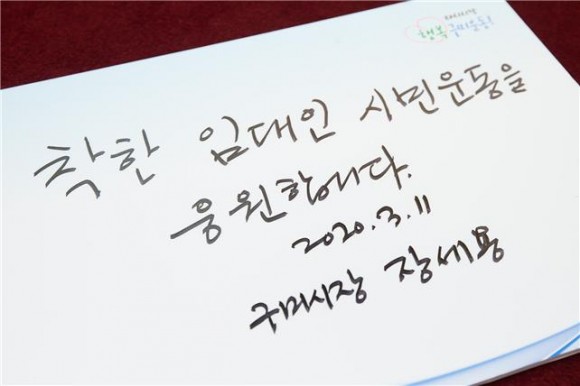 착한 임대인 시민운동을
응원합니다.
2020.3.11
구미시장 장세용